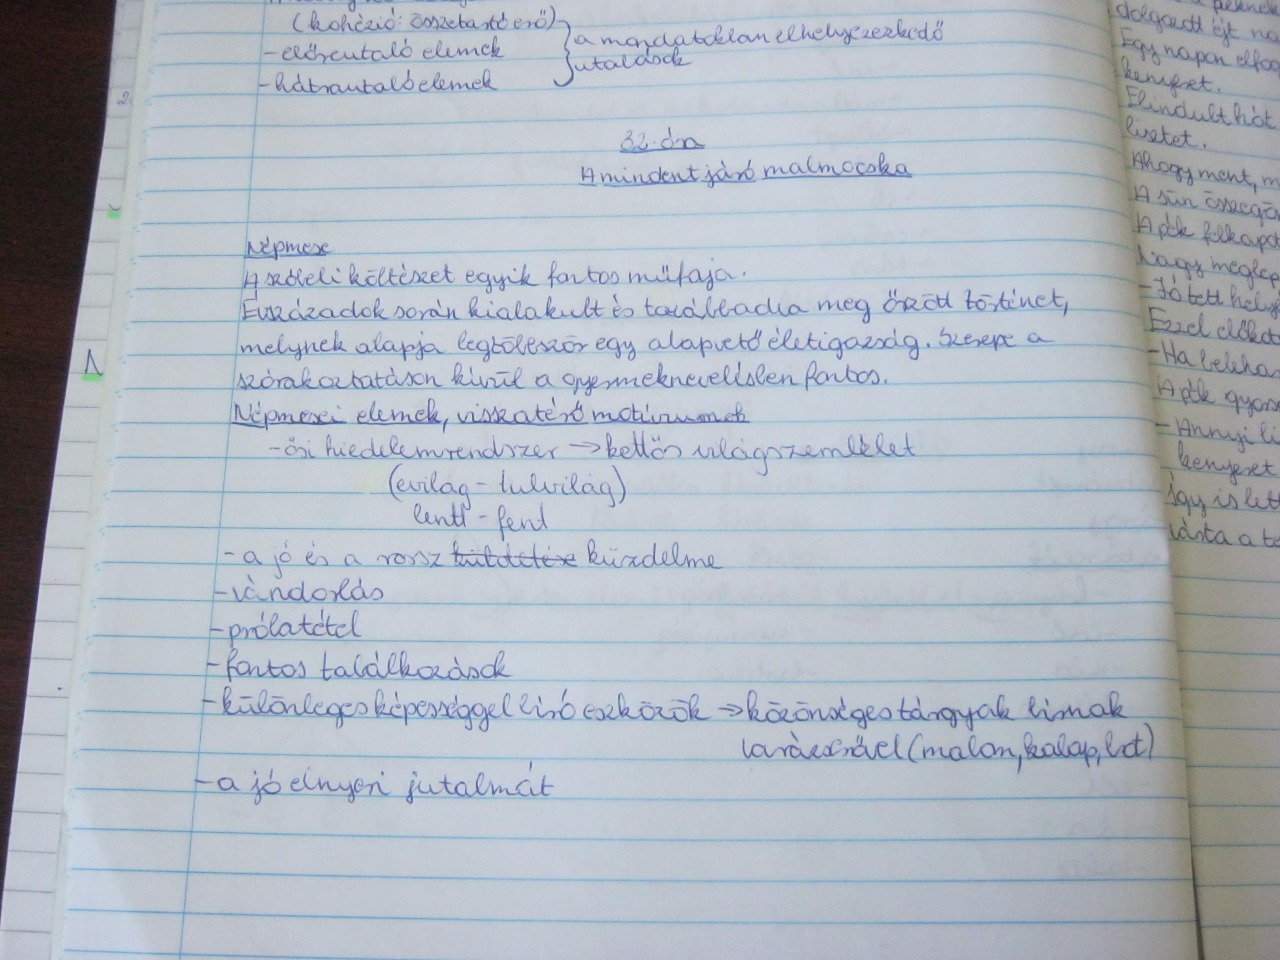 (kohézió: összetartó erő)
-előreutaló elemek
-hátrautaló elemek
a mondatokban elhelyezezkedő
utalások
32. óra
A mindent járó malmocska
Népmese
A szóbeli költészet egyik fontos műfaja.
Évszázadok során kialakult és továbbadva meg őrzött történet,
melynek alapja legtöbbször egy alapvető életigazság. Szerepe a
szórakoztatáson kívül a gyermeknevelésben fontos.
Népmesei elemek, visszatérő motívumok
-ősi hiedelemrendszer → kettős világszemlélet
(evilág - tulvilág)
lent - fent
-a jó és a rossz küzdelme
-vándorlás
-próbatétel
-fontos találkozások
-különleges képességgel bíró eszközök → közönséges tárgyak birnak
varázserővel (malom, kalap, bot)
-a jó elnyeri jutalmát
dolgozott éjt
Egy napon elfog
kenyeret.
Elindult hát
lisztet.
Ahogy ment, m
A sün összegö
A pék felkapt
Nagy meglep
-Jó tett hely
Ezzel elők
-Ha beleha
A pék gyors
-Annyi li
kenyeret
Így is lett